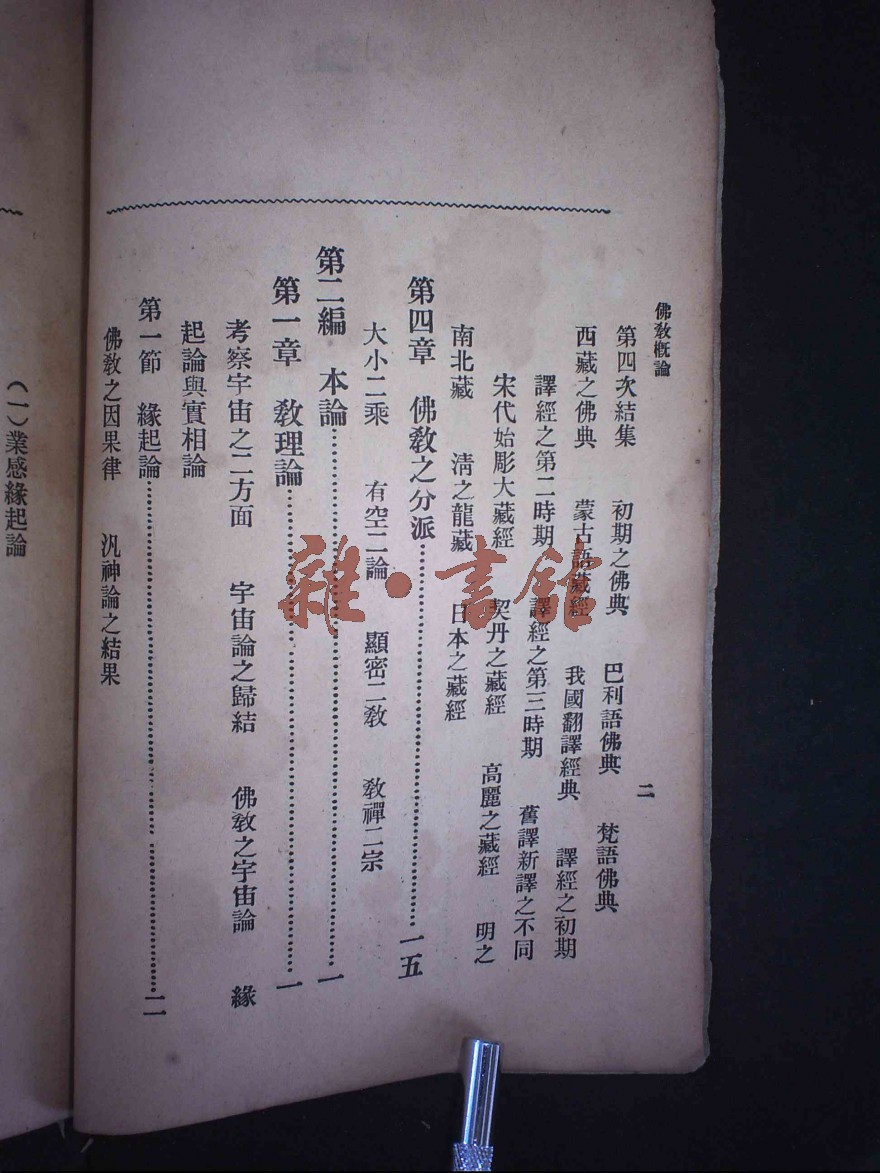 佛教概論
二
第四次結集　初期之佛典　巴利語佛典　梵語佛典
西藏之佛典　蒙古語藏經　我國翻譯經典　譯經之初期
譯經之第二時期　譯經之第三時期　舊譯新譯之不同
宋代始彫大藏經　契丹之藏經　高麗之藏經　明之
南北藏　淸之龍藏　日本之藏經
第四章　佛敎之分派……………………一五
大小二乘　有空二論　顯密二敎　敎禪二宗
第二編　本論……………………一
第一章　敎理論……………………一
考察宇宙之二方面　宇宙論之歸結　佛敎之宇宙論　緣
起論與實相論
第一節　緣起論……………………二
佛敎之因果律　汎神論之結果
（一）業感緣起論
雜·書館